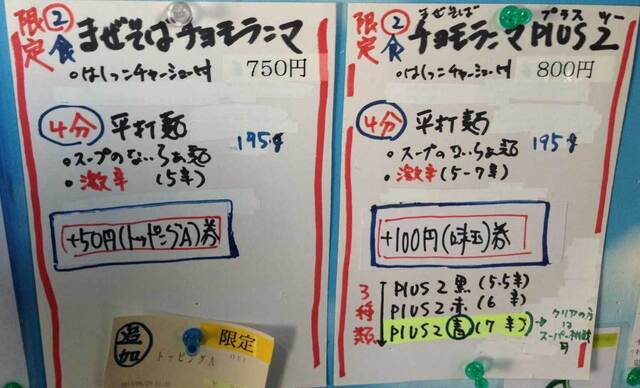 限定
②食
まぜそばチョモランマ
○はしっこチャーシュー付
750円
④分
平打麺
195g
○スープのないらぁ麺
○激辛(5辛)
+50円(トッピングA)券
追加
限定
トッピングA
限定
②食
まぜそば プラス ツー
チョモランマPLUS2
○はしっこチャーシュー付
800円
4分
平打麺
195g
○スープのないらぁ麺
○激辛(5-7辛)
+100円(味玉)券
3種類
PLUS2 黒(5.5辛)
PLUS2 赤(6辛)
PLUS2 青(7辛)
→クリアの方は
スーパー